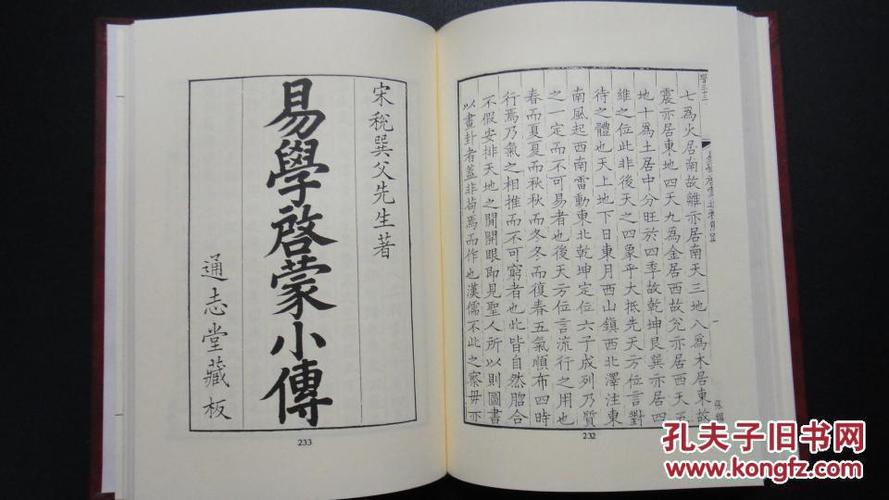 七爲火居南故離亦居南天三地八爲木居東故
震亦居東地四天九爲金居西故兌亦居西天五
地十爲土居中分旺於四季故乾坤艮巽亦居四
維之位此非後天之四象乎大抵先天方位言對
待之體也天上地下日東月西山鎮西北澤注東
南風起西南雷動東北乾坤定位六子成列乃質
之一定而不可易者也後天方位言流行之用也
春而夏夏而秋秋而冬冬而復春五氣順布四時
行焉乃氣之相推而不可窮者也此皆自然脗合
不假安排天地之閒開眼即見聖人所以則圖書
以畫卦者蓋非苟焉而作也漢儒不此之察毋亦
232
宋稅巽父先生著
易學啓蒙小傳
通志堂藏板
233
孔夫子旧书网
www.kongfz.com